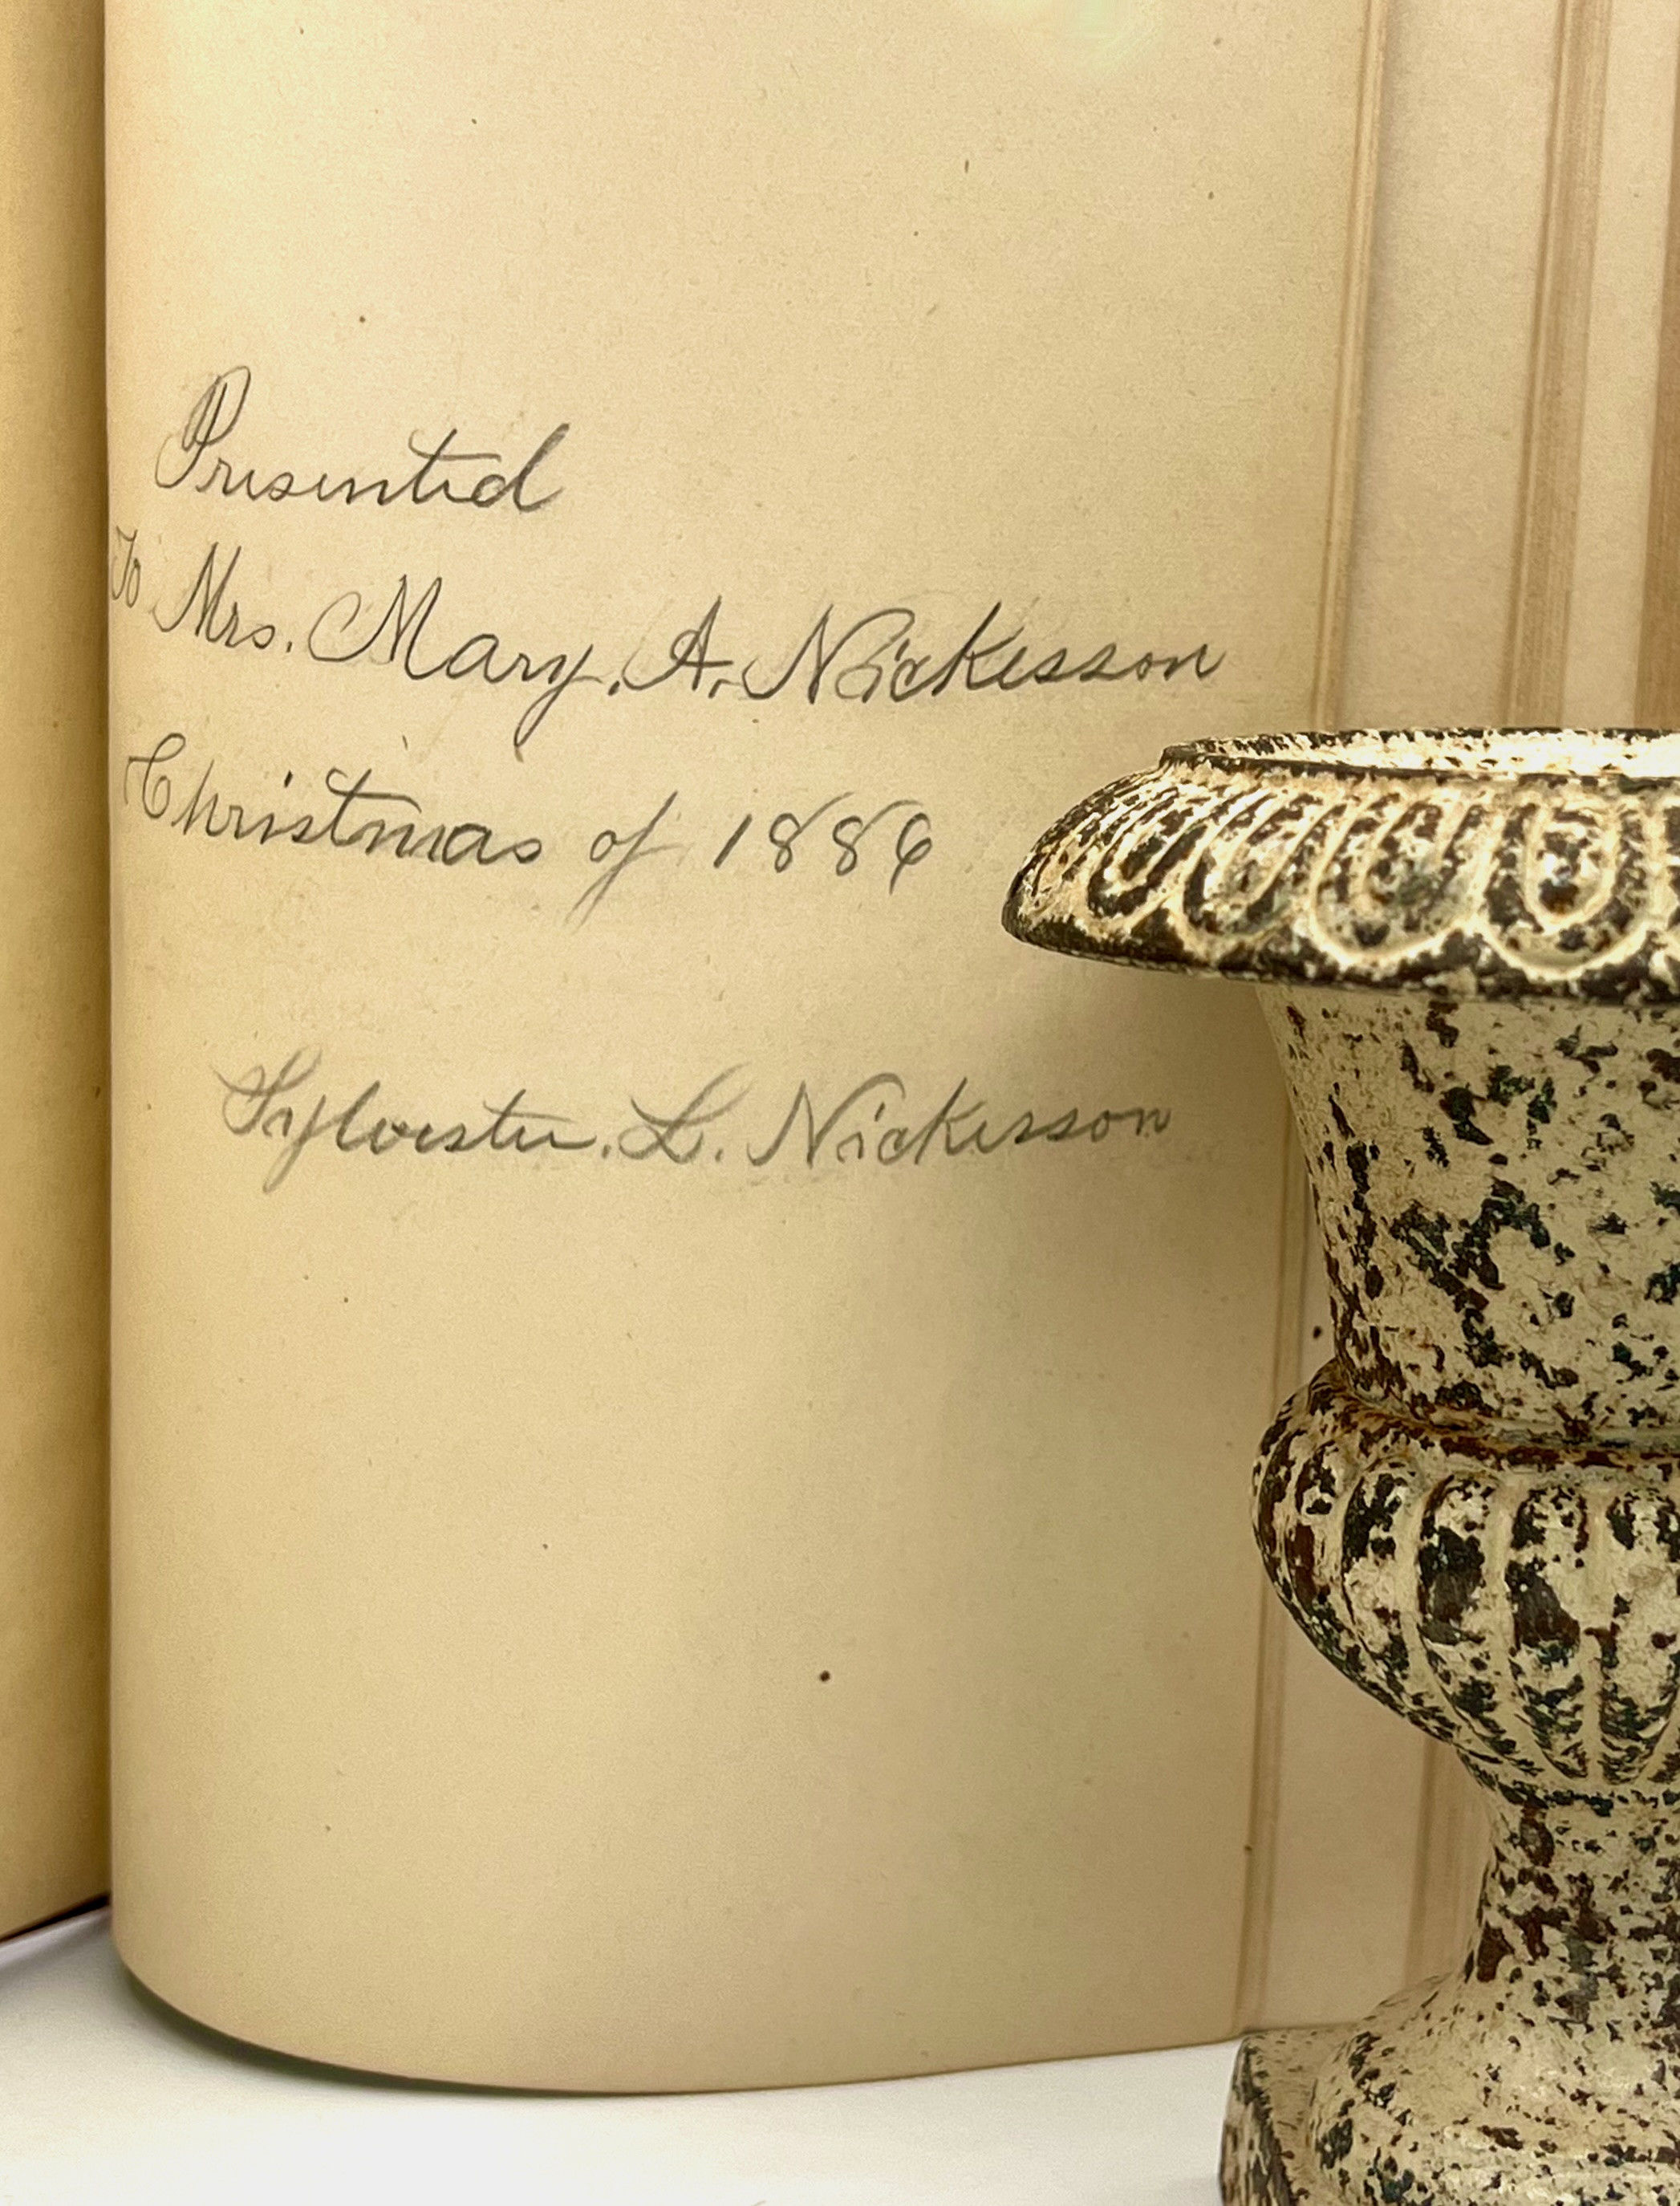 Presented
To Mrs. Mary. A. Nickesson
Christmas of 1886
Sylvester. L. Nickerson